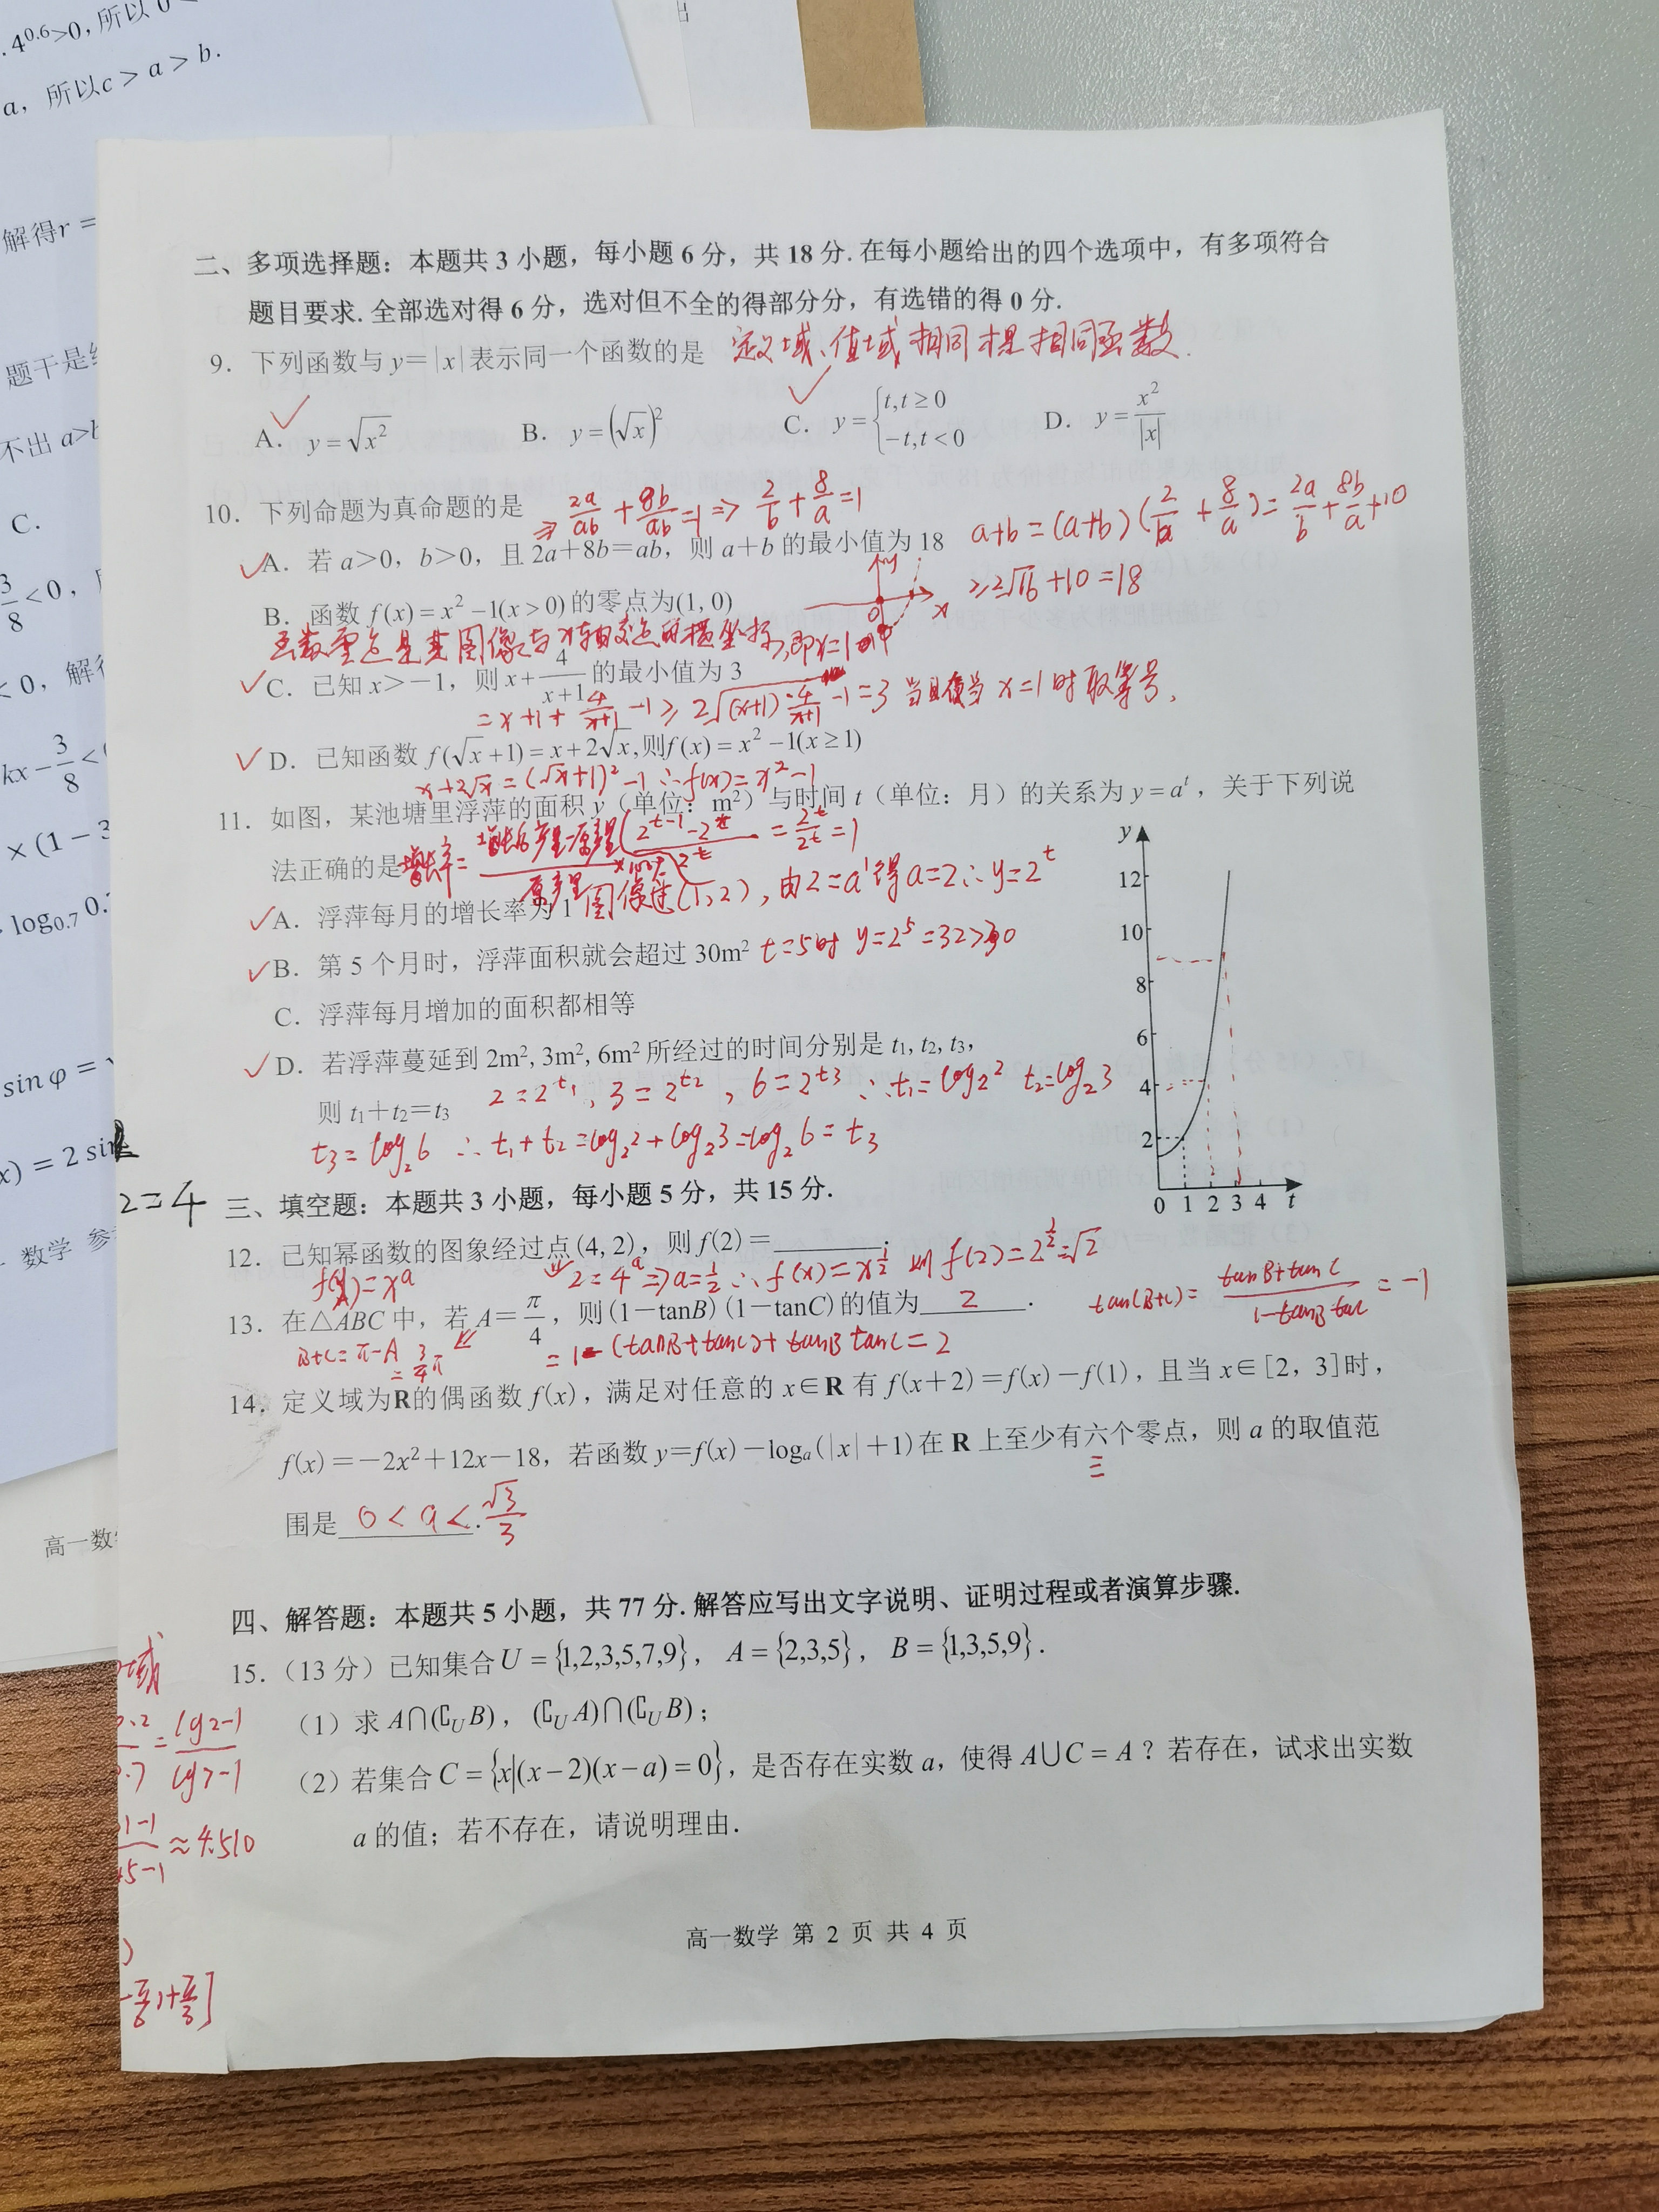 .4^0.6>0,所以 0<
a，所以c > a > b.
解得r =
题干是
不出 a>b
C.
3/8<0，
< 0，解得
kx-3/8<
×(1-3
log_0.7 0.
sin φ =
x) = 2 sin
2=4
数学 参
高一数
二、多项选择题：本题共 3 小题，每小题 6 分，共 18 分. 在每小题给出的四个选项中，有多项符合
题目要求. 全部选对得 6 分，选对但不全的得部分分，有选错的得 0 分.
9. 下列函数与 y=|x| 表示同一个函数的是 定义域、值域相同才是相同函数.
A. y=√(x²) B. y=(√x)² C. y={t,t≥0 -t,t<0 D. y=x²/|x|
10. 下列命题为真命题的是 ⇒ 2a/ab + 8b/ab =1 ⇒ 2/b + 8/a =1
A. 若 a>0，b>0，且 2a+8b=ab，则 a+b 的最小值为 18 a+b=(a+b)(2/b + 8/a)= 2a/b + 8b/a +10
≥2√16 +10=18
B. 函数 f(x)=x²-1(x>0)的零点为(1, 0)
函数零点是其图像与x轴交点的横坐标,即x=1
C. 已知 x>-1，则 x+4/(x+1) 的最小值为 3
= x+1+ 4/(x+1) -1 ≥ 2√((x+1)·4/(x+1)) -1=3 当且仅当 x=1 时取等号,
D. 已知函数 f(√x+1)=x+2√x,则f(x)=x²-1(x≥1)
x+2√x=(√x+1)²-1 ∴f(x)=x²-1
11. 如图，某池塘里浮萍的面积 y（单位：m²）与时间 t（单位：月）的关系为 y=a^t，关于下列说
法正确的是 增长率= = 2^t/2^t =1
A. 浮萍每月的增长率为 1 图像过(1,2)，由2=a¹得a=2∴y=2^t
B. 第 5 个月时，浮萍面积就会超过 30m² t=5时 y=2⁵=32>30
C. 浮萍每月增加的面积都相等
D. 若浮萍蔓延到 2m², 3m², 6m² 所经过的时间分别是 t₁, t₂, t₃，
2=2^t₁, 3=2^t₂, 6=2^t₃ ∴t₁=log₂2 t₂=log₂3
则 t₁+t₂=t₃
t₃=log₂6 ∴t₁+t₂=log₂2+log₂3=log₂6=t₃
y
12
10
8
6
4
2
0 1 2 3 4 t
三、填空题：本题共 3 小题，每小题 5 分，共 15 分.
12. 已知幂函数的图象经过点(4, 2)，则 f(2)=________.
f(x)=x^a 2=4^a ⇒a=1/2 ∴f(x)=x^1/2 则 f(2)=2^1/2=√2
13. 在△ABC 中，若 A=π/4，则(1-tanB)(1-tanC)的值为 2 . tan(B+C)= (tanB+tanC)/(1-tanB tanC) = -1
B+C=π-A =3/4π =1-(tanB+tanC)+tanB tanC=2
14. 定义域为R的偶函数 f(x)，满足对任意的 x∈R 有 f(x+2)=f(x)-f(1)，且当 x∈[2，3]时，
f(x)=-2x²+12x-18，若函数 y=f(x)-logₐ(|x|+1)在 R 上至少有六个零点，则 a 的取值范
围是 0<a<√3/3 .
四、解答题：本题共 5 小题，共 77 分. 解答应写出文字说明、证明过程或者演算步骤.
15.（13 分）已知集合U={1,2,3,5,7,9}，A={2,3,5}，B={1,3,5,9}.
（1）求 A∩(∁_U B)，(∁_U A)∩(∁_U B)；
（2）若集合C={x|(x-2)(x-a)=0}，是否存在实数 a，使得 A∪C=A？若存在，试求出实数
a 的值；若不存在，请说明理由.
域
= (lg2-1)/(lg7-1)
≈4.510
高一数学 第 2 页 共 4 页